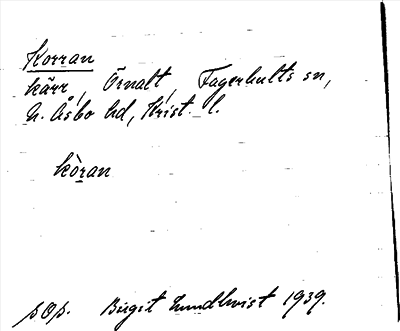 Korran
kärr, Örnalt, Fagerhults sn,
N. Åsbo hd, Krist. l.
kòran
sOp. Birgit Lundkvist 1939.